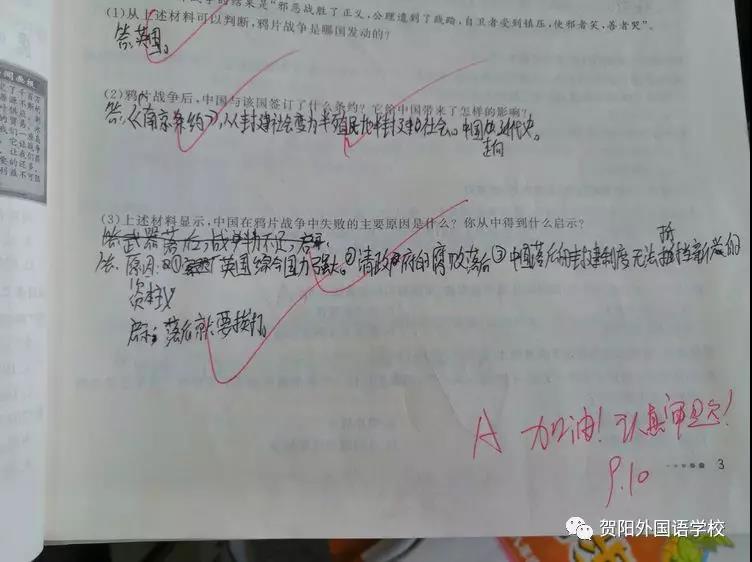 战争的结果是“邪恶战胜了正义，公理遭到了践踏，自卫者受到镇压，使邪者笑，善者哭”。
(1)从上述材料可以判断，鸦片战争是哪国发动的？
答：英国。
(2)鸦片战争后，中国与该国签订了什么条约？它给中国带来了怎样的影响？
答：《南京条约》，从封建社会变为半殖民地半封建社会。中国走向近代史。
(3)上述材料显示，中国在鸦片战争中失败的主要原因是什么？你从中得到什么启示？
答：武器落后，战争
答：原因：①英国综合国力强大。②清政府的腐败落后③中国落后的封建制度无法抵挡新兴的
资本
启示：落后就要挨打。
A 加油！认真审题！
P.10
3
贺阳外国语学校